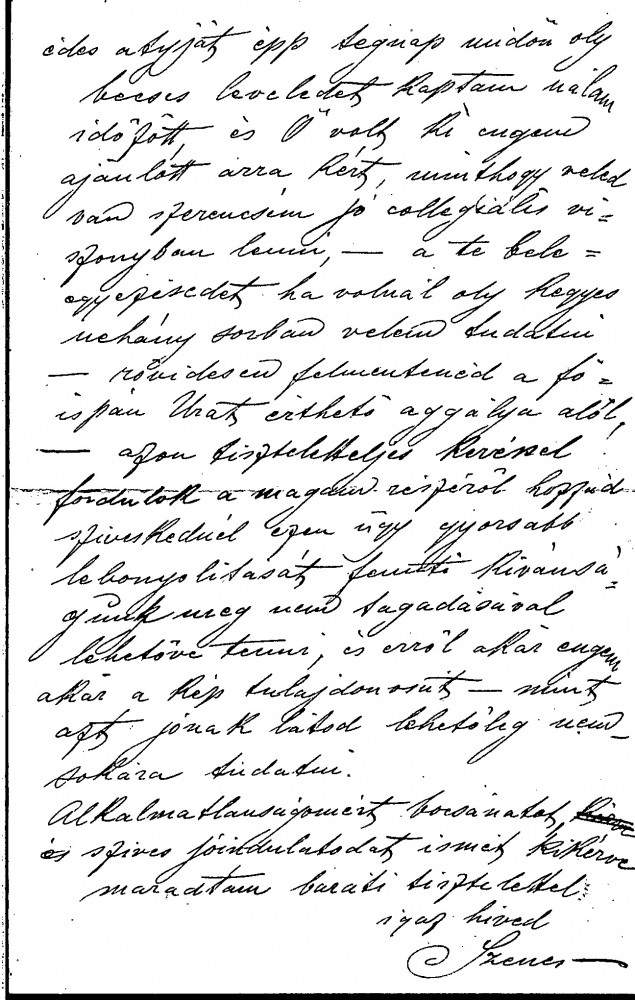 édes atyját épp tegnap midőn oly
becses leveledet kaptam nálam
időzött, és Ő volt ki engem
ajánlott arra kért, minthogy veled
van szerencsém jó collegiális vi=
szonyban lenni, — a te bele=
egyezésedet ha volnál oly kegyes
néhány sorban velem tudatni
— rövidesen felmentenéd a fő=
ispán Urat érthető aggálya alól,
— azon tiszteletteljes kéréssel
fordulok a magam részéről hozzád
szíveskednél ezen ügy gyorsabb
lebonyolitását fennti kivánsá=
gunk meg nem tagadásával
lehetővé tenni, és erről akár engem
akár a kép tulajdonosát — mint
azt jónak látod lehetőleg nem
sokára tudatni.
Alkalmatlanságomért bocsánatot,
és szives jóindulatodat ismét kikérve
maradtam baráti tisztelettel
igaz hived
Szenes —